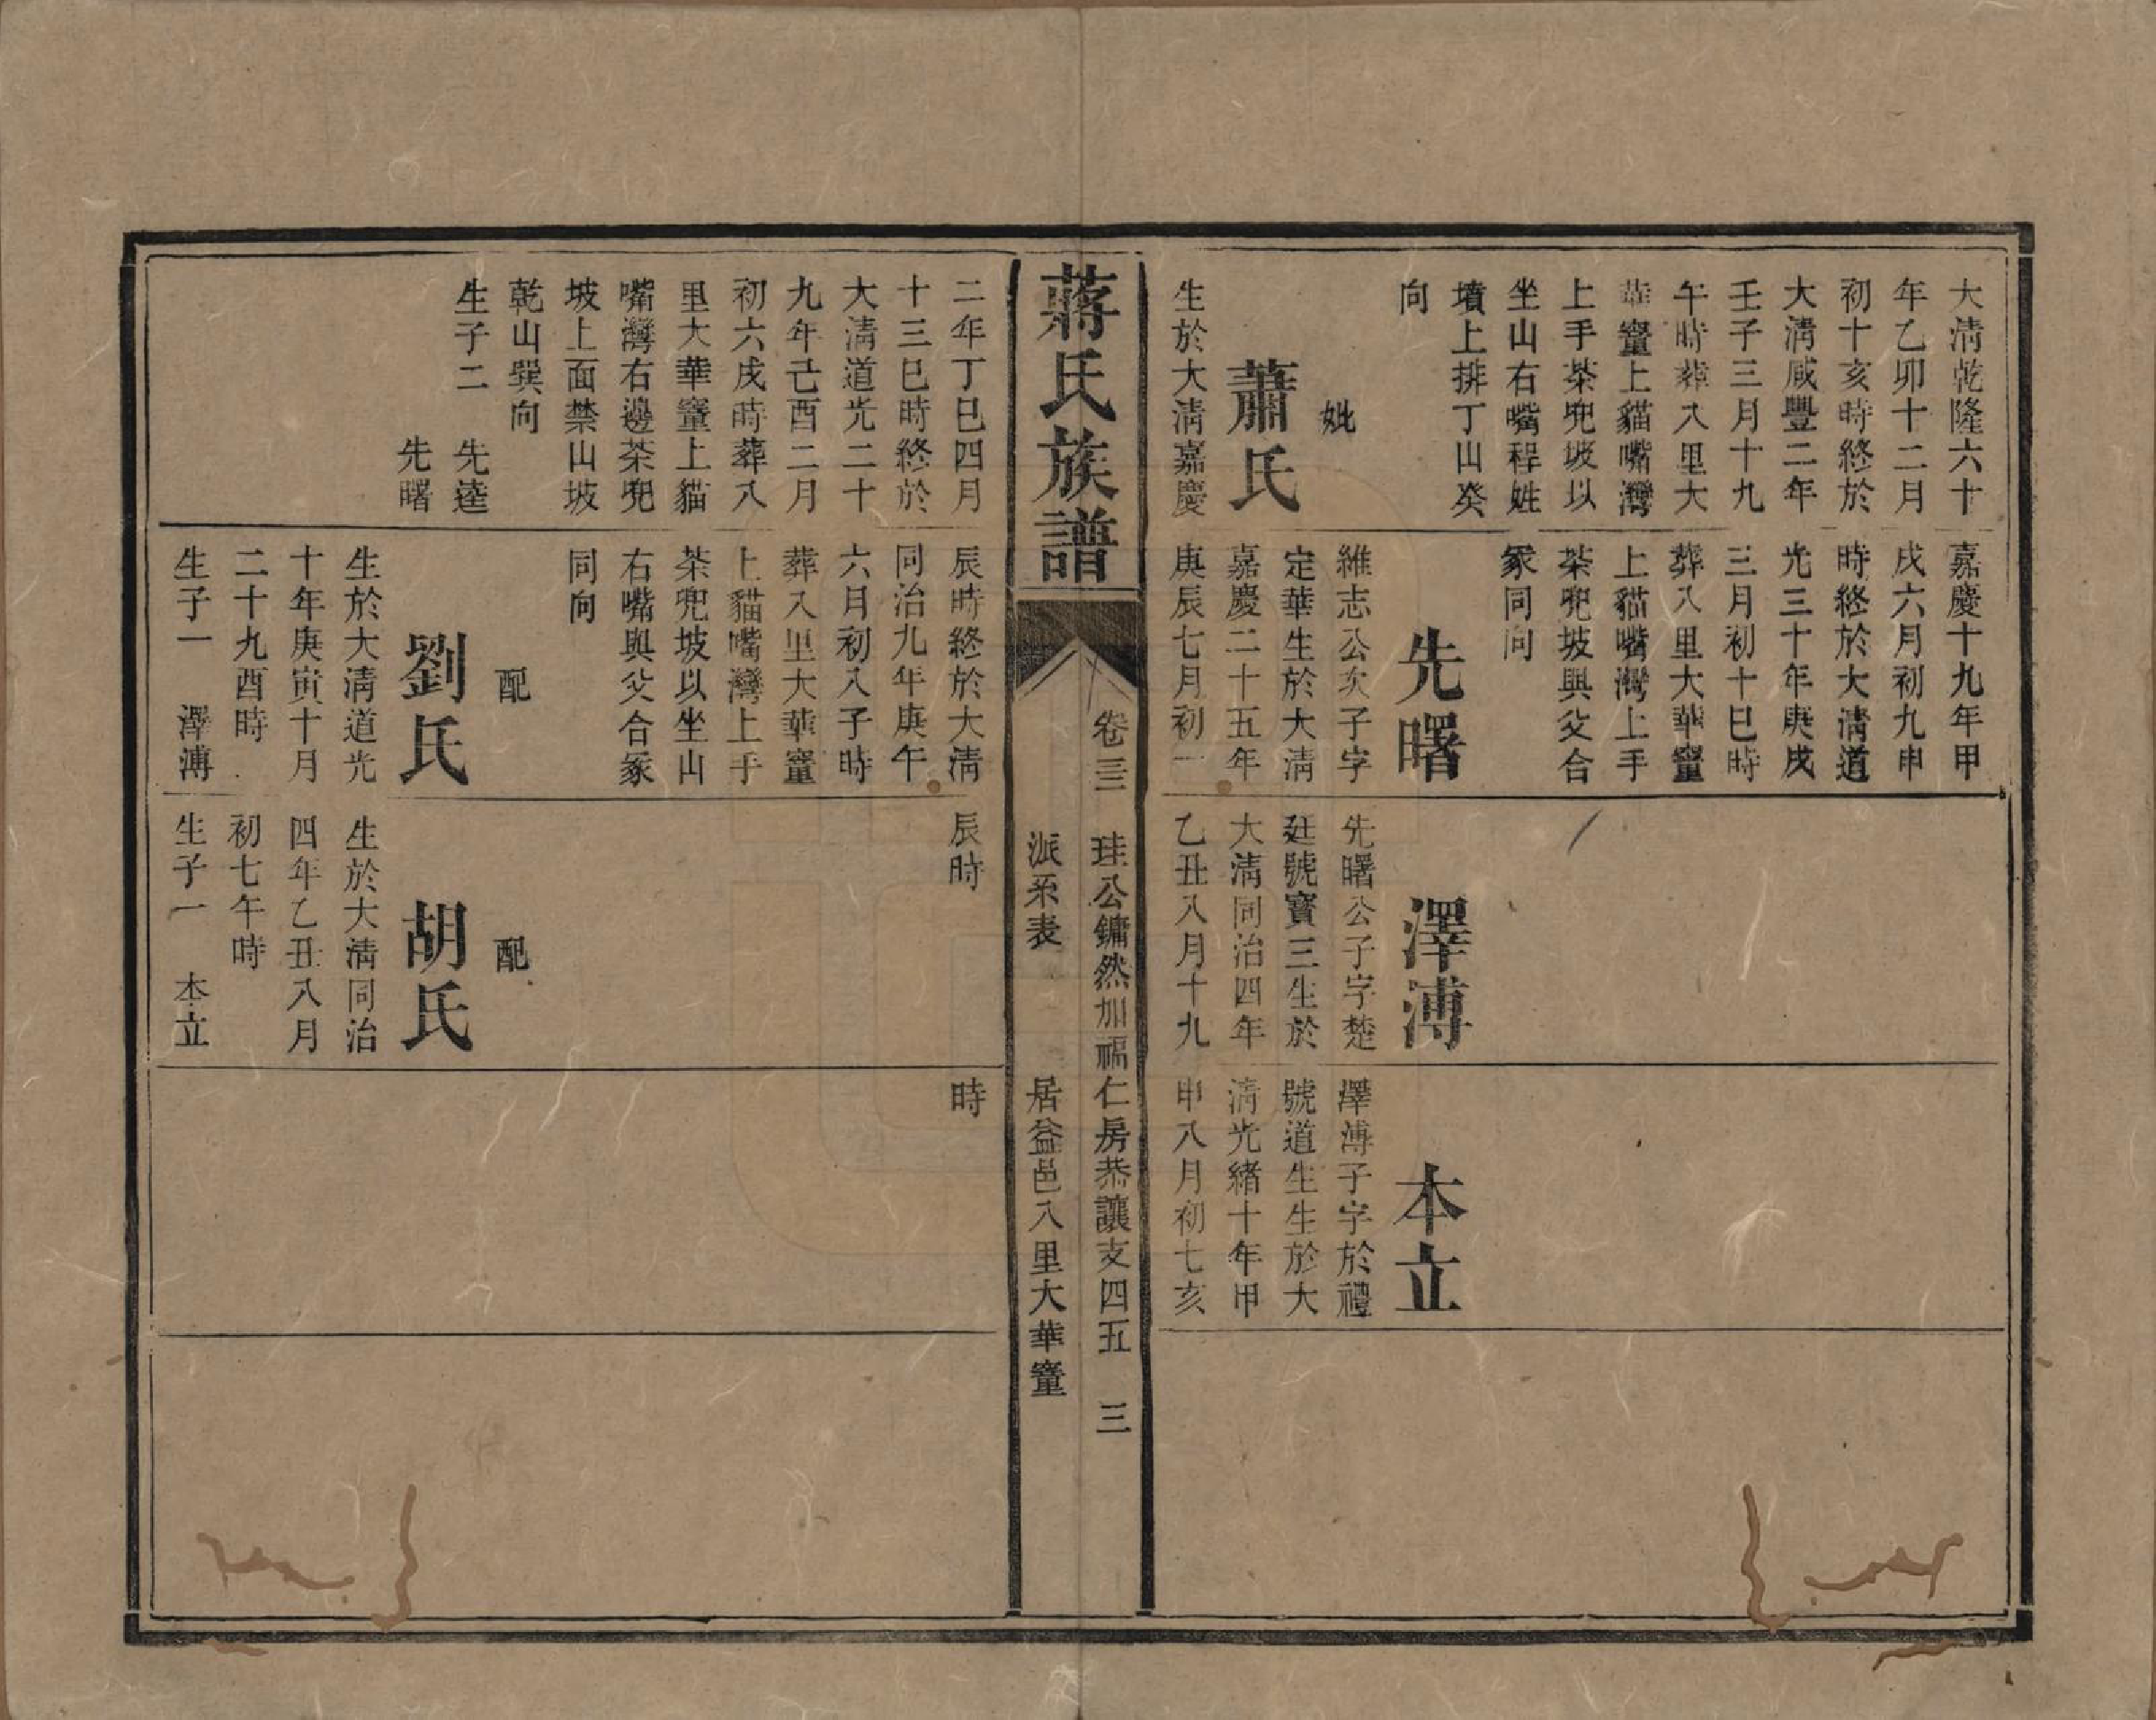 大清乾隆六十
年乙卯十二月
初十亥時終於
大清咸豐二年
壬子三月十九
午時葬八里大
華𥧌上貓嘴灣
上手茶兜坡以
坐山右嘴程姓
墳上排丁山癸
向
妣
蕭氏
生於大清嘉慶
嘉慶十九年甲
戌六月初九申
時終於大清道
光三十年庚戌
三月初十巳時
葬八里大華𥧌
上貓嘴灣上手
茶兜坡與父合
冢同向
先曙
維志公次子字
定華生於大清
嘉慶二十五年
庚辰七月初一
澤溥
先曙公子字楚
廷號寶三生於
大清同治四年
乙丑八月十九
本立
澤溥子字於禮
號道生生於大
清光緒十年甲
申八月初七亥
蔣氏族譜
卷三三 珪公鏞然加福仁房恭讓支四五 三
派系表 居益邑八里大華𥧌
二年丁巳四月
十三巳時終於
大清道光二十
九年己酉二月
初六戌時葬八
里大華𥧌上貓
嘴灣右邊茶兜
坡上面禁山坡
乾山巽向
生子二 先逵
先曙
辰時終於大清
同治九年庚午
六月初八子時
葬八里大華𥧌
上貓嘴灣上手
茶兜坡以坐山
右嘴與父合冢
同向
配
劉氏
生於大清道光
十年庚寅十月
二十九酉時
生子一 澤溥
辰時
配
胡氏
生於大清同治
四年乙丑八月
初七午時
生子一 本立
時